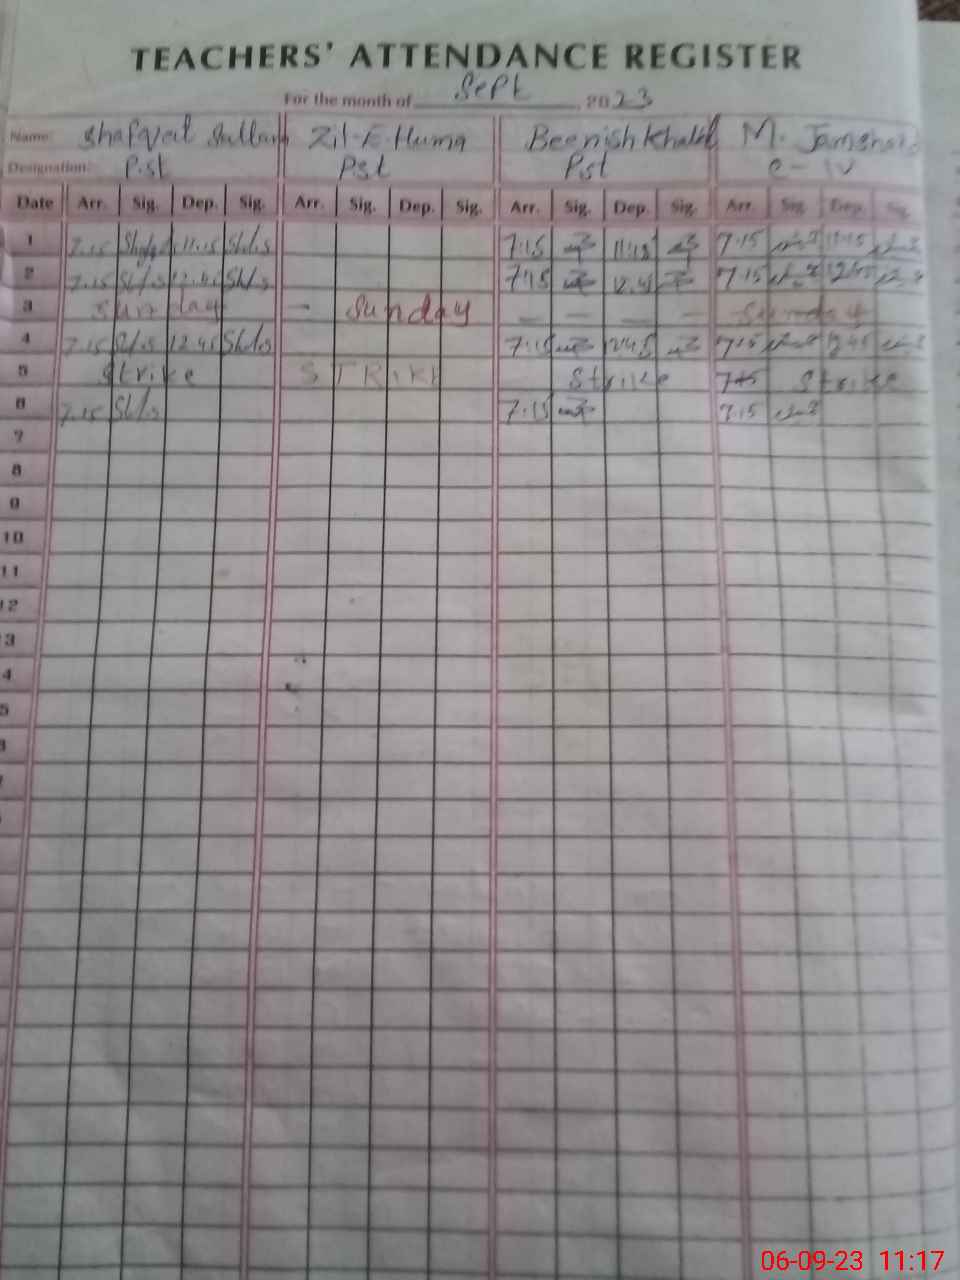 TEACHERS' ATTENDANCE REGISTER
For the month of Sept, 2023
Name: Shafqat Sultana Zil-E-Huma Beenish Khalid M. Jamshaid
Designation: P.st Pst Pst C-IV
Date Arr. Sig. Dep. Sig. Arr. Sig. Dep. Sig. Arr. Sig. Dep. Sig. Arr. Sig. Dep. Sig.
1 7.15 11.15 7:15 11:15 7:15 11:15
2 7.15 12.45 7:15 12.45 7:15 12:45
3 Sunday - Sunday — — — — Sunday
4 7.15 12.45 7:15 12:45 7:15 12:45
5 Strike STRIKE Strike 7:15 Strike
6 7.15 7:15 7:15
7
8
9
10
11
12
3
4
5
06-09-23 11:17